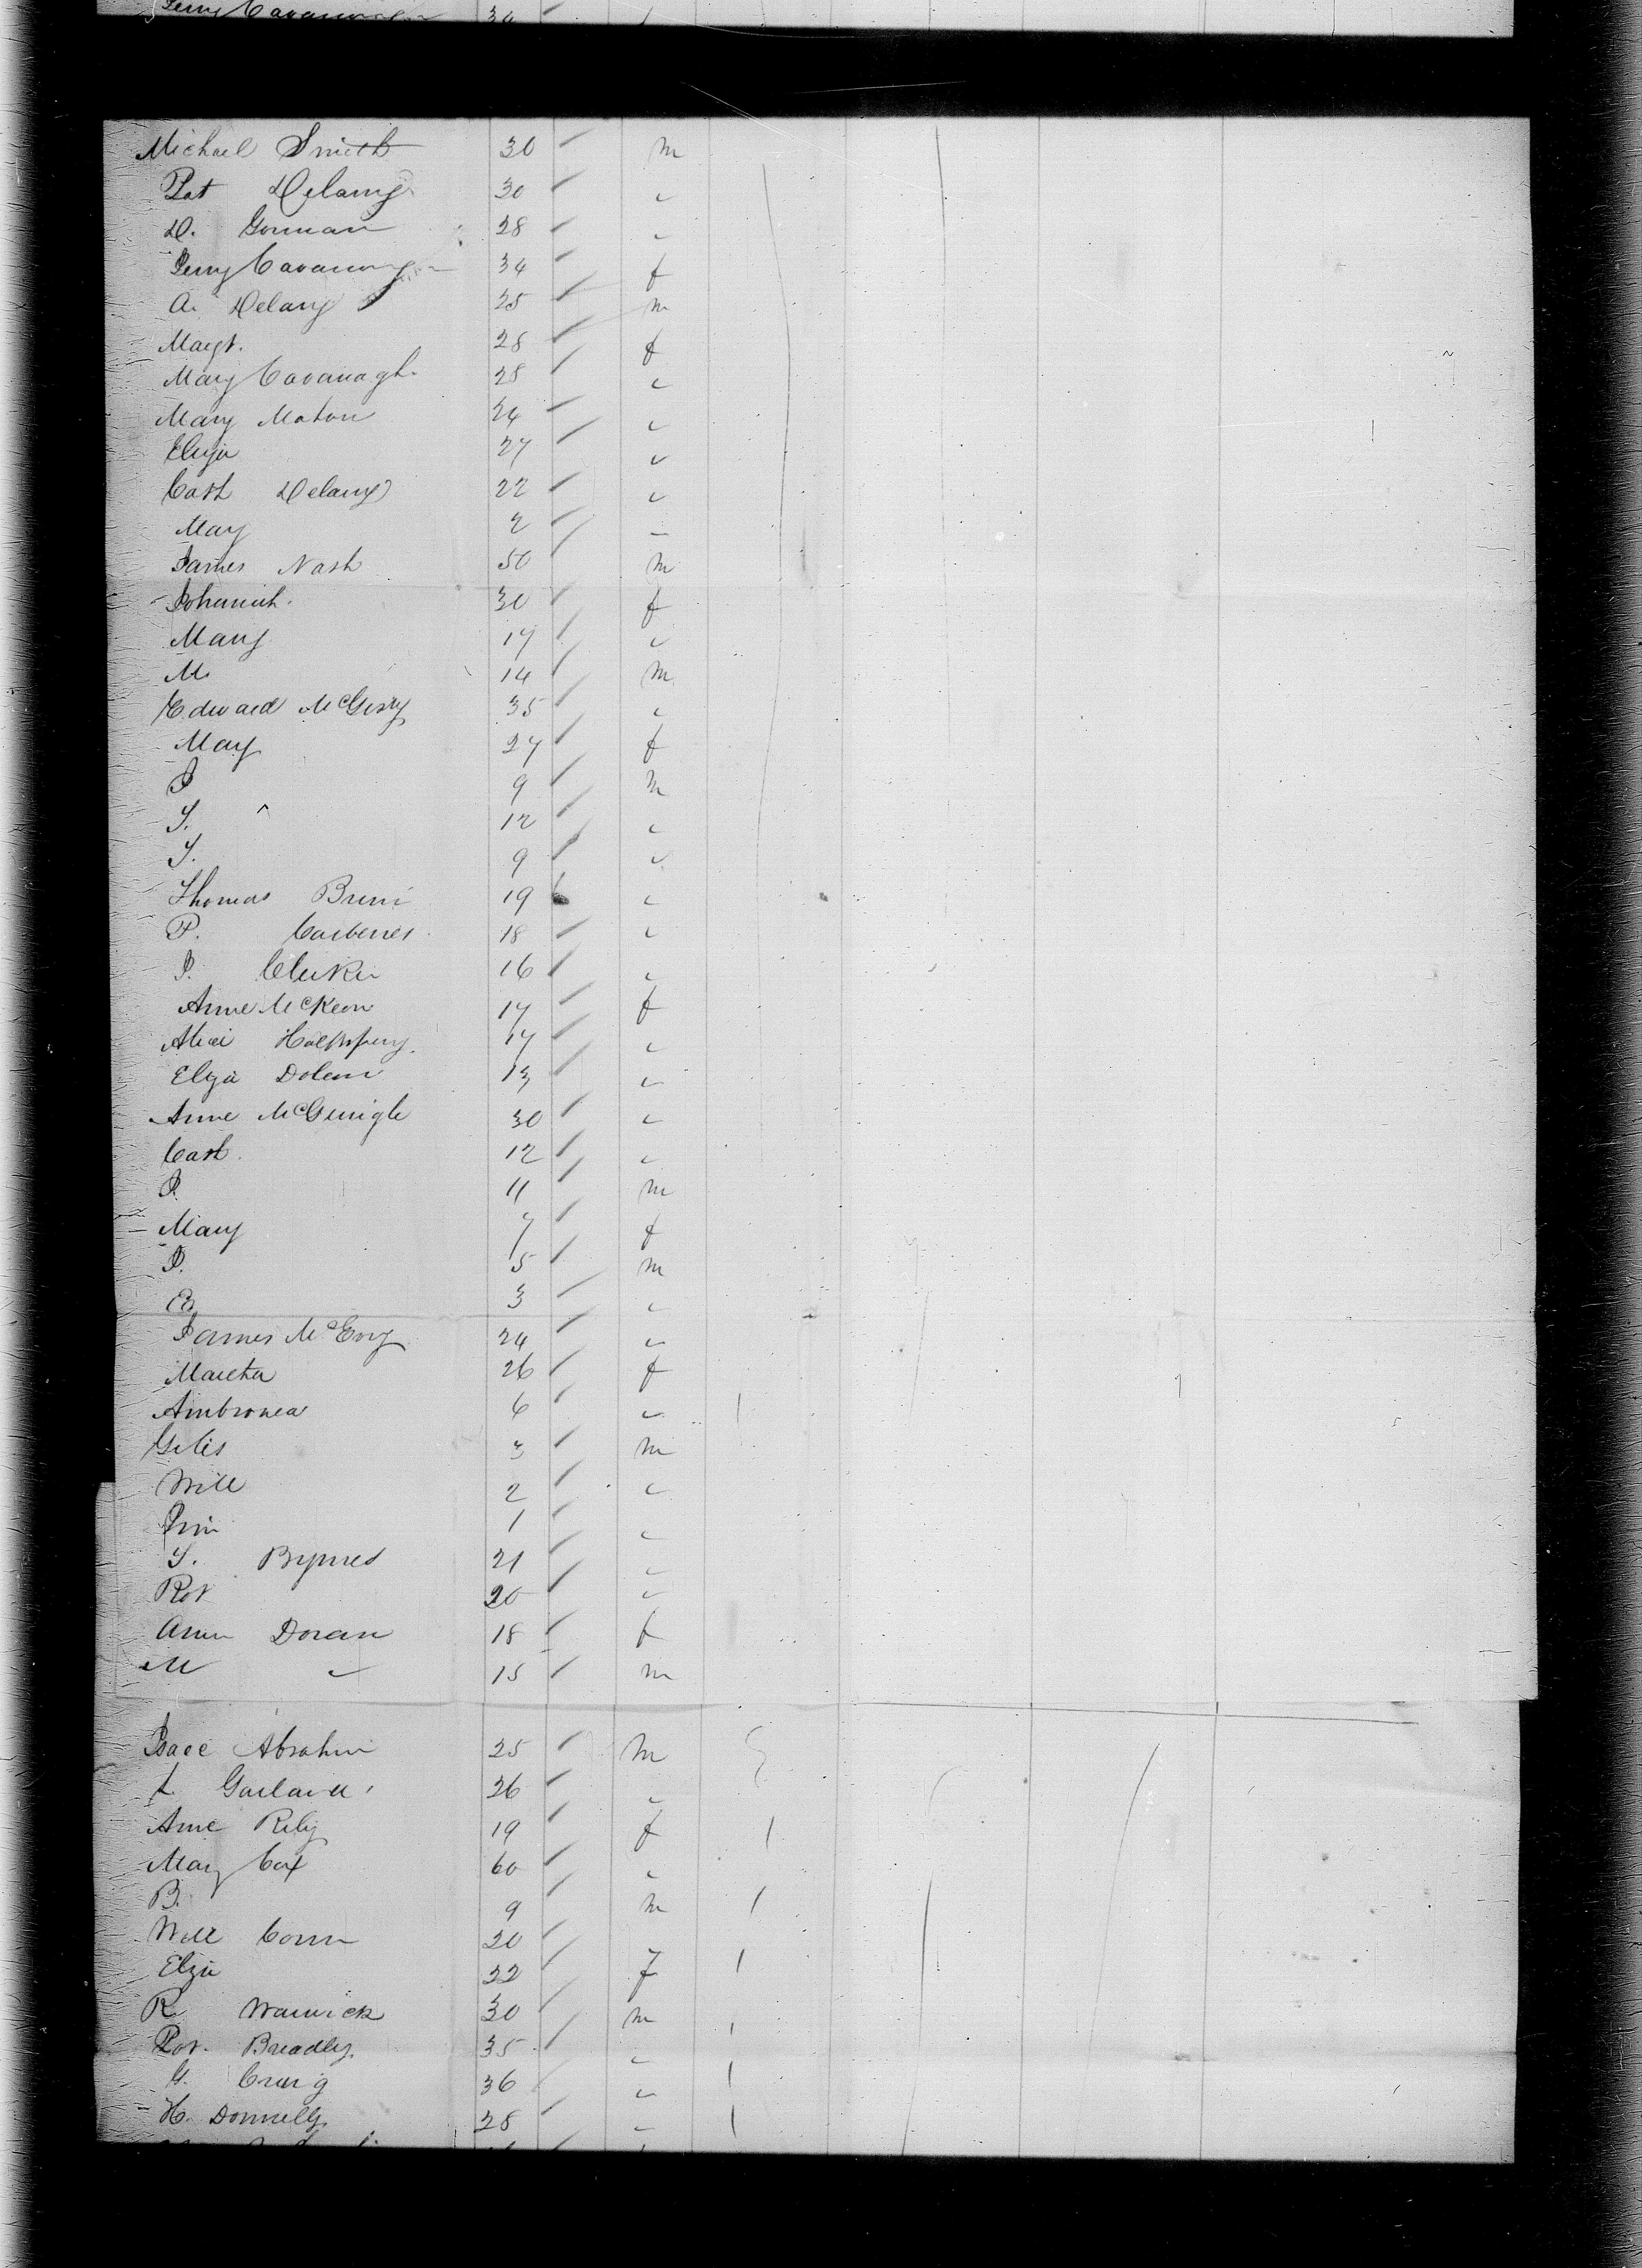 Michael Smith 30 m
Pat Delany 30 "
D. Gorman 28 "
Perry Cavanough 34 f
A. Delany 25 m
Margt. 28 f
Mary Cavanagh 28 "
Mary Maton 24 "
Eliza 27 "
Cath Delany 22 "
Mary 2 "
James Nash 50 m
Johanah 30 f
Mary 17 "
M 14 m
Edward McGerty 35 "
Mary 27 f
J 9 m
T. 12 "
T. 9 "
Thomas Brien 19 "
P. 18 "
J. 16 "
Anne McKeon 17 f
17 "
Eliza Dolan 13 "
Anne McGunigle 30 "
Cath. 12 "
J. 11 m
Mary 7 f
J. 5 m
3 "
James McEvoy 24 "
Martha 26 f
6 "
Giles 3 m
Will 2 "
Jim 1 "
T. Byrnes 21 "
20 "
Ann Doran 18 f
M " 15 m
Isaac Abrahm 25 m
26 "
Anne Rily 19 f
Mary Cox 60 "
B. 9 m
Will Conn 20
Eliza 22 f
R Warwick 30 m
Breadley 35 "
G. Craig 36 "
H. Donnelly 28 "